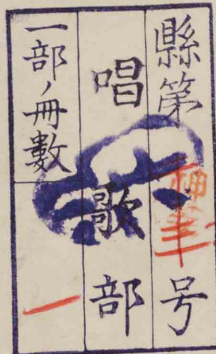 縣第 号
唱歌部
一部ノ冊數 一